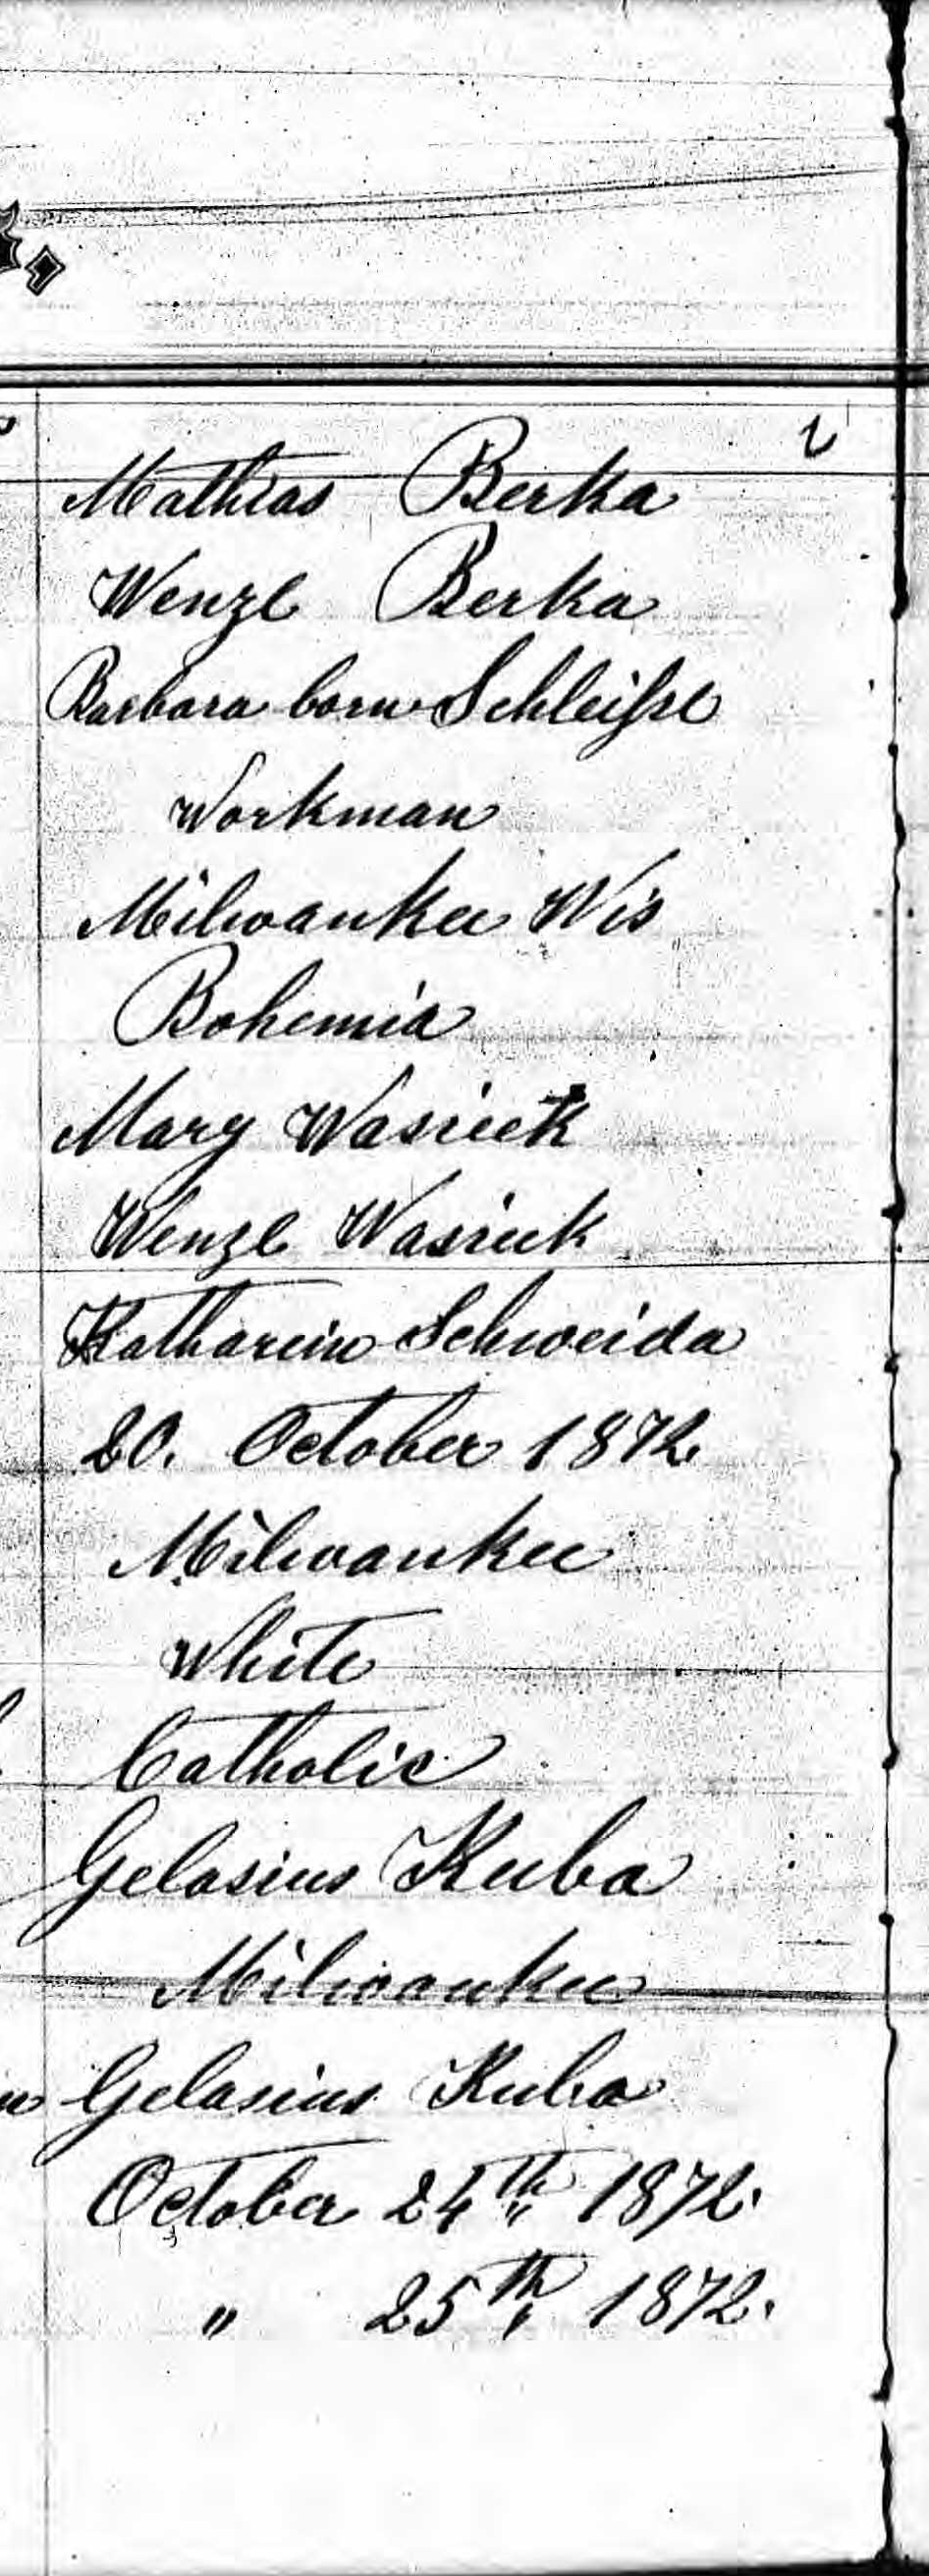 Mathias Berka
Wenzl Berka
Barbara born Schleißl
Workman
Milwaukee Wis
Bohemia
Mary Wasicek
Wenzl Wasicek
Katharein Schweida
20. October 1872
Milwaukee
White
Catholic
Gelasius Kuba
Milwaukee
Gelasius Kuba
October 24th 1872.
" 25th 1872.